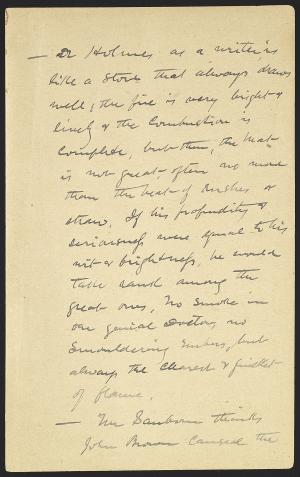 — Dr Holmes as a writer is
like a stove that always draws
well; the fire is very bright &
lively & the combustion is
complete, but then, the heat
is not great, often no more
than the heat of rushes or
straw. If his profundity &
seriousness were equal to his
wit & brightness, he would
take rank among the
great ones. No smoke in
our genial Doctor, no
smouldering embers, but
always the clearest & quickest
of flame.
— Mr Sanborn thinks
John Brown caused the